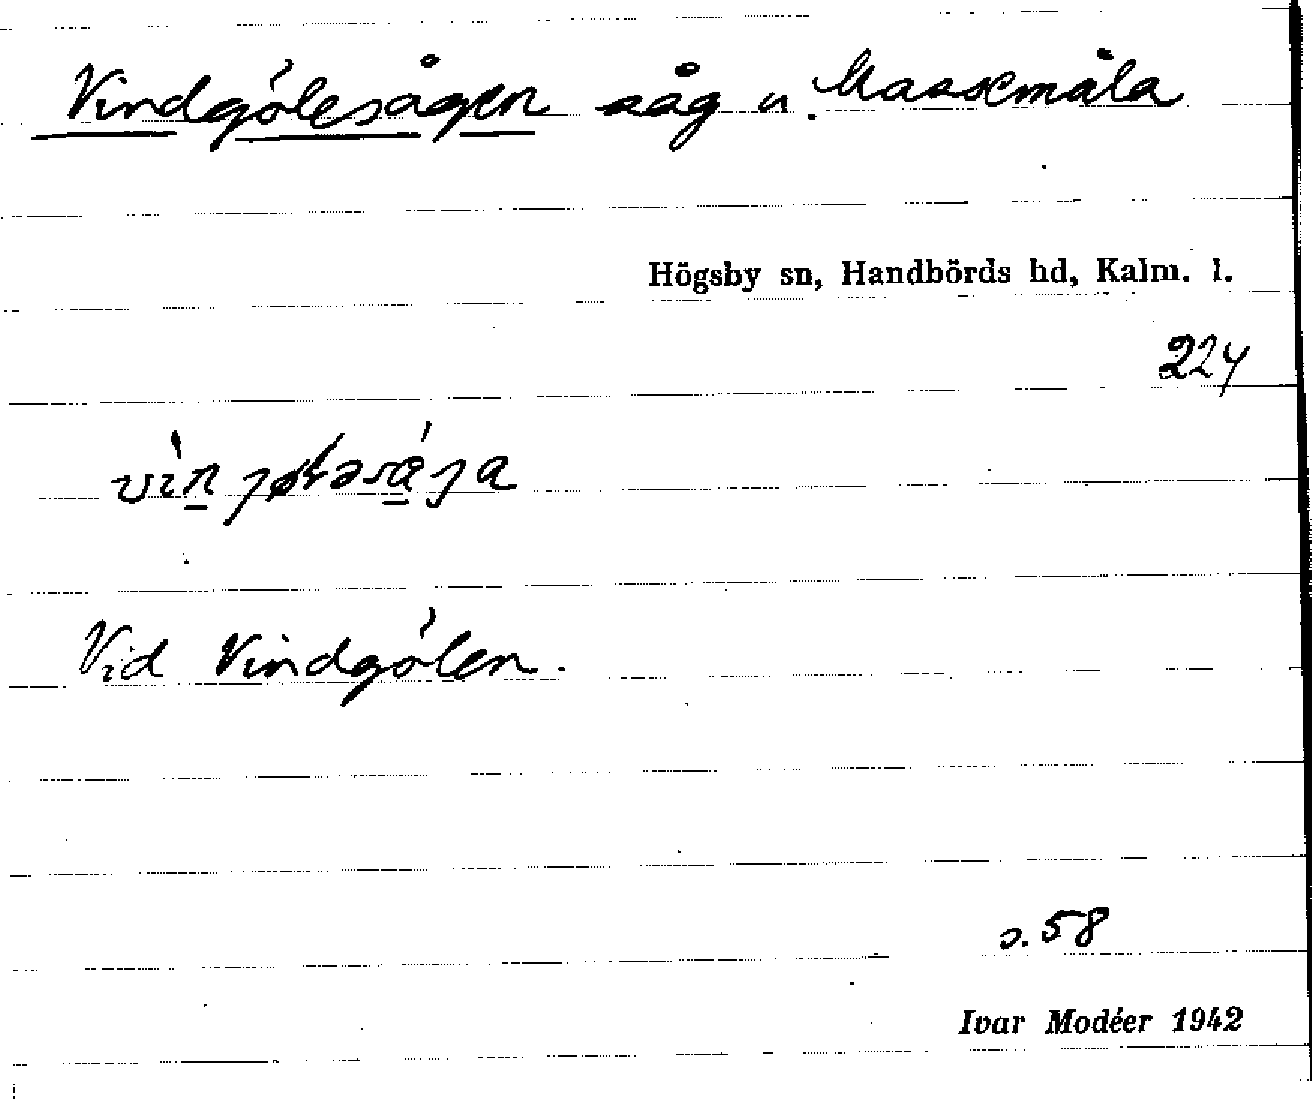 Vindgólesågen såg u. Maassemåla
Högsby sn, Handbörds hd, Kalm. l.
224
Vid Vindgólen.
s. 58
Ivar Modéer 1942